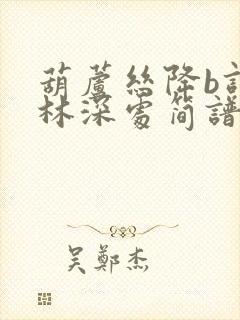 葫蘆絲降b調
林深處简譜
吴鄭杰